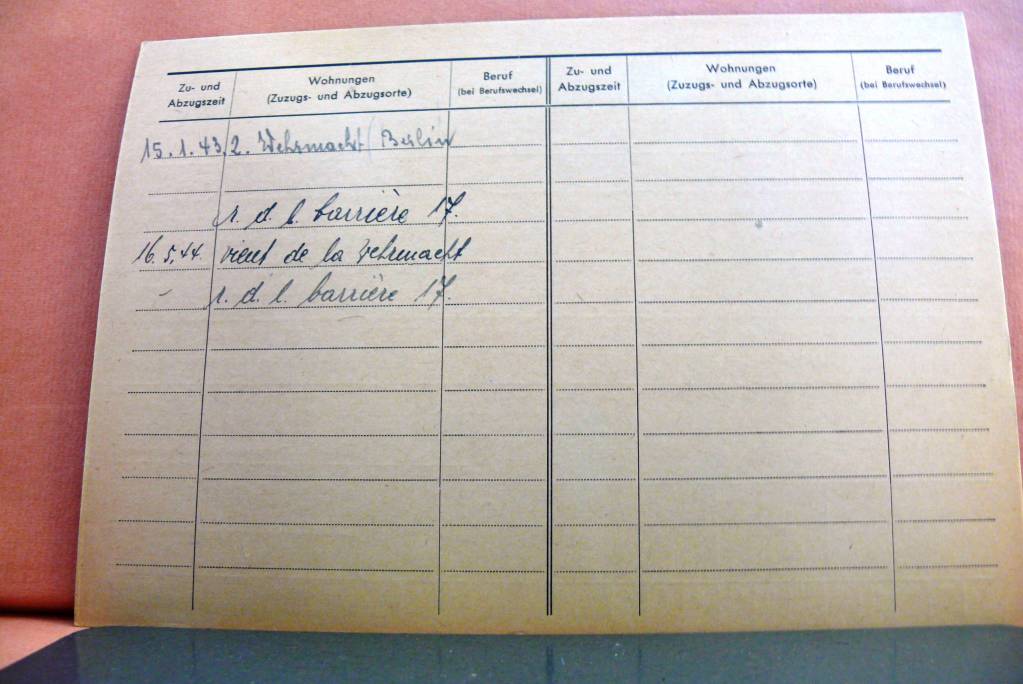 Zu- und Abzugszeit
Wohnungen
(Zuzugs- und Abzugsorte)
Beruf
(bei Berufswechsel)
Zu- und Abzugszeit
Wohnungen
(Zuzugs- und Abzugsorte)
Beruf
(bei Berufswechsel)
15.1.43 z. Wehrmacht (Berlin
r. d. l. barrière 17.
16.5.44. vient de la Wehrmacht
- r. d. l. barrière 17.